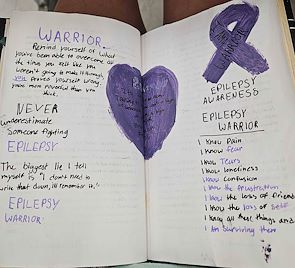 WARRIOR
Remind yourself of what
you've been able to overcome all
the times you felt like you
weren't going to make it through,
you proved yourself wrong.
your more powerful than you
NEVER
underestimate
Someone fighting
EPILEPSY
The biggest lie I tell
myself is "I don't need to
write that down, I'll remember it."
EPILEPSY
WARRIOR
EPILEPSY
AWARENESS
EPILEPSY
WARRIOR
I Know Pain
I Know Fear
I Know Tears
I Know loneliness
I Know Confusion
I Know the frustration
I Know the loss of friends
I Know the loss of self
I Know all these things and
I Am Surviving them